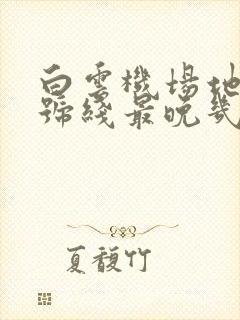 白雲機場地
號綫最晚幾
夏馥竹